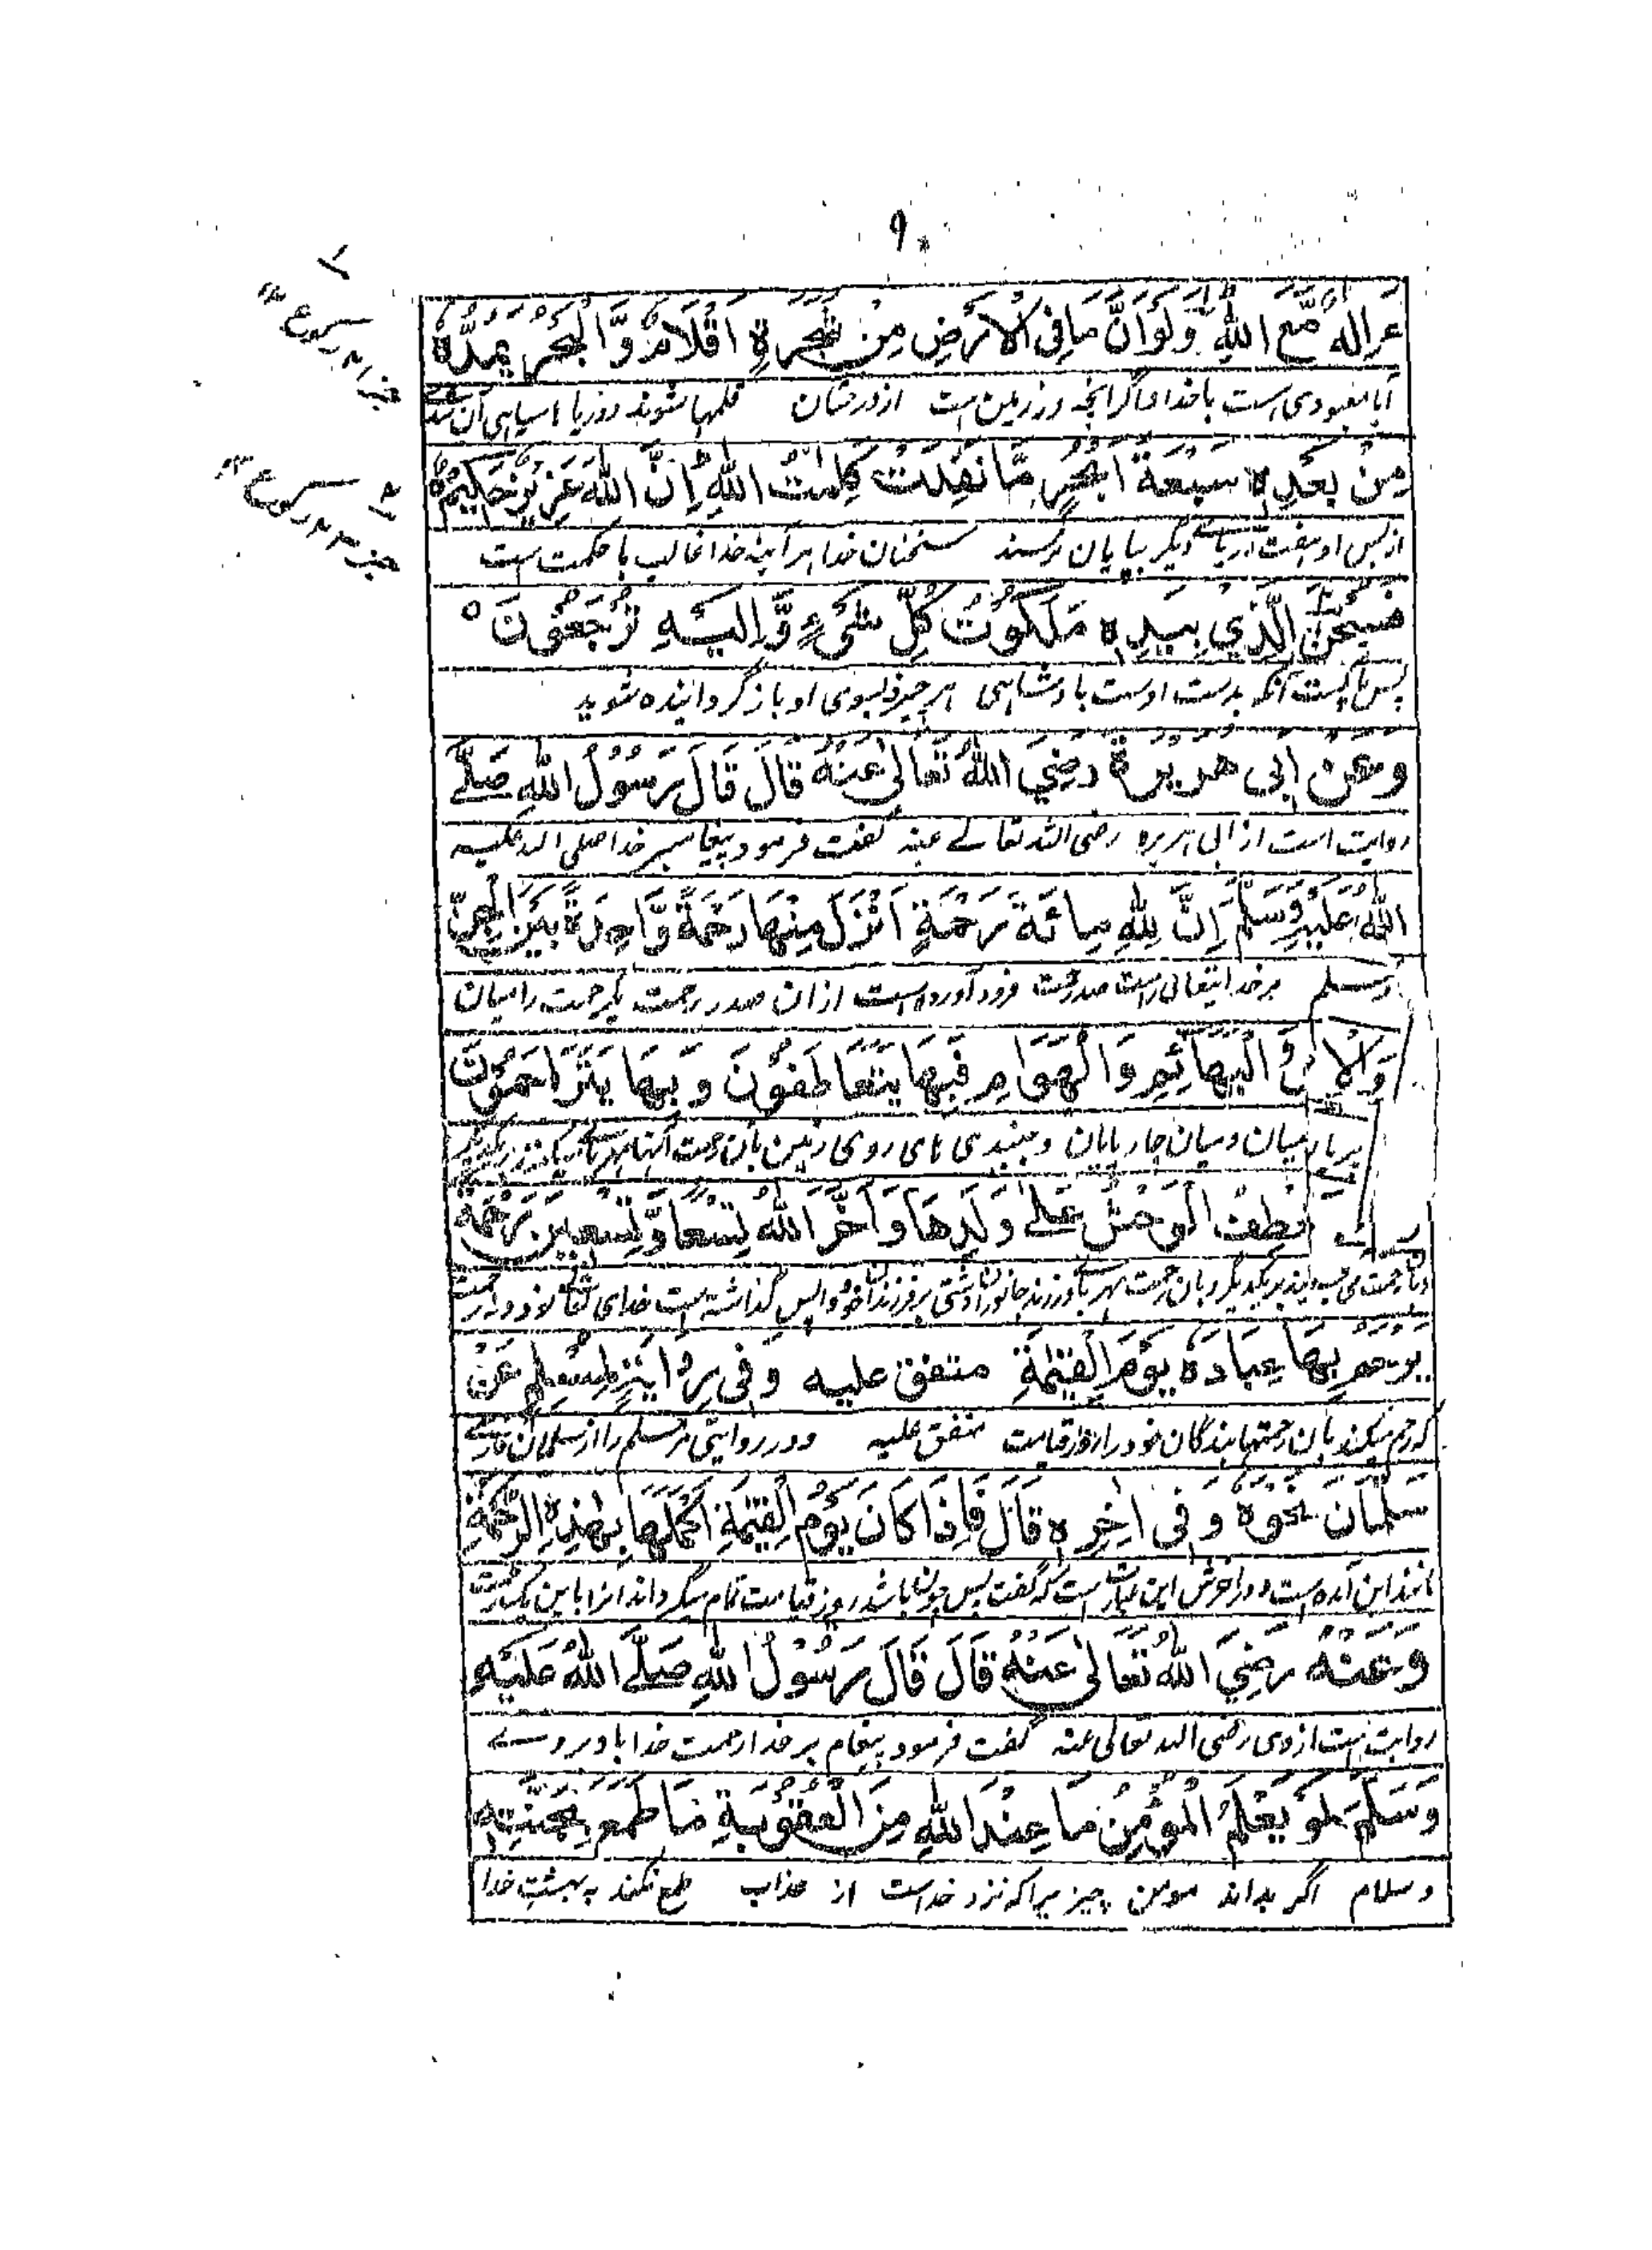 ۹
ءَاِلٰهٌ مَّعَ اللهِ وَلَوْ اَنَّ مَا فِی الْاَرْضِ مِنْ شَجَرَةٍ اَقْلَامٌ وَّالْبَحْرُ یَمُدُّهٗ
آیا معبودی است با خدا و اگر آنچه در زمین است از درختان قلمها شوند و دریا سیاهی آن
مِنْ بَعْدِهٖ سَبْعَةُ اَبْحُرٍ مَّا نَفِدَتْ كَلِمٰتُ اللهِ اِنَّ اللهَ عَزِیْزٌ حَكِیْمٌ
از پس او هفت دریای دیگر بپایان نرسند سخنان خدا هرآئینه خدا غالب با حکمت است
فَسُبْحٰنَ الَّذِیْ بِیَدِهٖ مَلَكُوْتُ كُلِّ شَیْءٍ وَّاِلَیْهِ تُرْجَعُوْنَ
پس پاکست آنکه بدست اوست بادشاهی هر چیز و بسوی او باز گردانیده شوید
وعن ابی هریرة رَضِیَ اللهُ تَعَالٰی عَنْهُ قَالَ قَالَ رَسُوْلُ اللهِ صَلَّے
روایت است از ابی هریره رضی الله تعالے عنه گفت فرمود پیغامبر خدا صلی الله علیه
اللهُ عَلَیْهِ وَسَلَّمَ اِنَّ لِلّٰهِ مِائَةَ رَحْمَةٍ اَنْزَلَ مِنْهَا رَحْمَةً وَّاحِدَةً بَیْنَ الْجِنِّ
وسلم مر خدایتعالی راست صد رحمت فرود آورده است ازان صد رحمت یک رحمت را میان
وَالْاِنْسِ وَالْبَهَائِمِ وَالْهَوَامِّ فَبِهَا یَتَعَاطَفُوْنَ وَبِهَا یَتَرَاحَمُوْنَ
پریان میان و میان چارپایان و جنبندی های روی زمین بآن رحمت
تعطف الْوَحْشُ عَلٰے وَلَدِهَا وَاَخَّرَ اللهُ تِسْعًا وَّتِسْعِیْنَ رَحْمَةً
بر یکدیگر و بآن رحمت بر فرزندان خود و واپس گذاشته است خدای تعالی نود و نه رحمت
یَرْحَمُ بِهَا عِبَادَهٗ یَوْمَ الْقِیٰمَةِ متفق علیه وَفِی رِوَایَةٍ لِمُسْلِمٍ عَنْ
که رحم میکند بآن رحمتها بندگان خود را روز قیامت متفق علیه و در روایتی مر مسلم را از سلمان فارسے
سَلْمَانَ نَحْوَهٗ وَفِی اٰخِرِهٖ قَالَ فَاِذَا كَانَ یَوْمُ الْقِیٰمَةِ اَكْمَلَهَا بِهٰذِهِ الرَّحْمَةِ
مانند این آمده است و در آخرش این عبارت است که گفت پس چون باشد روز قیامت تمام میگرداند آنرا باین یک رحمت
وَعَنْهُ رَضِیَ اللهُ تَعَالٰی عَنْهُ قَالَ قَالَ رَسُوْلُ اللهِ صَلَّے اللهُ عَلَیْهِ
روایت است از وی رضی الله تعالی عنه گفت فرمود پیغامبر خدا رحمت خدا باد بر وے
وَسَلَّمَ لَوْ یَعْلَمُ الْمُؤْمِنُ مَا عِنْدَ اللهِ مِنَ الْعُقُوْبَةِ مَا طَمِعَ بِجَنَّتِهٖ
و سلام اگر بداند مومن چیزیرا که نزد خداست از عذاب طمع نکند به بهشت خدا